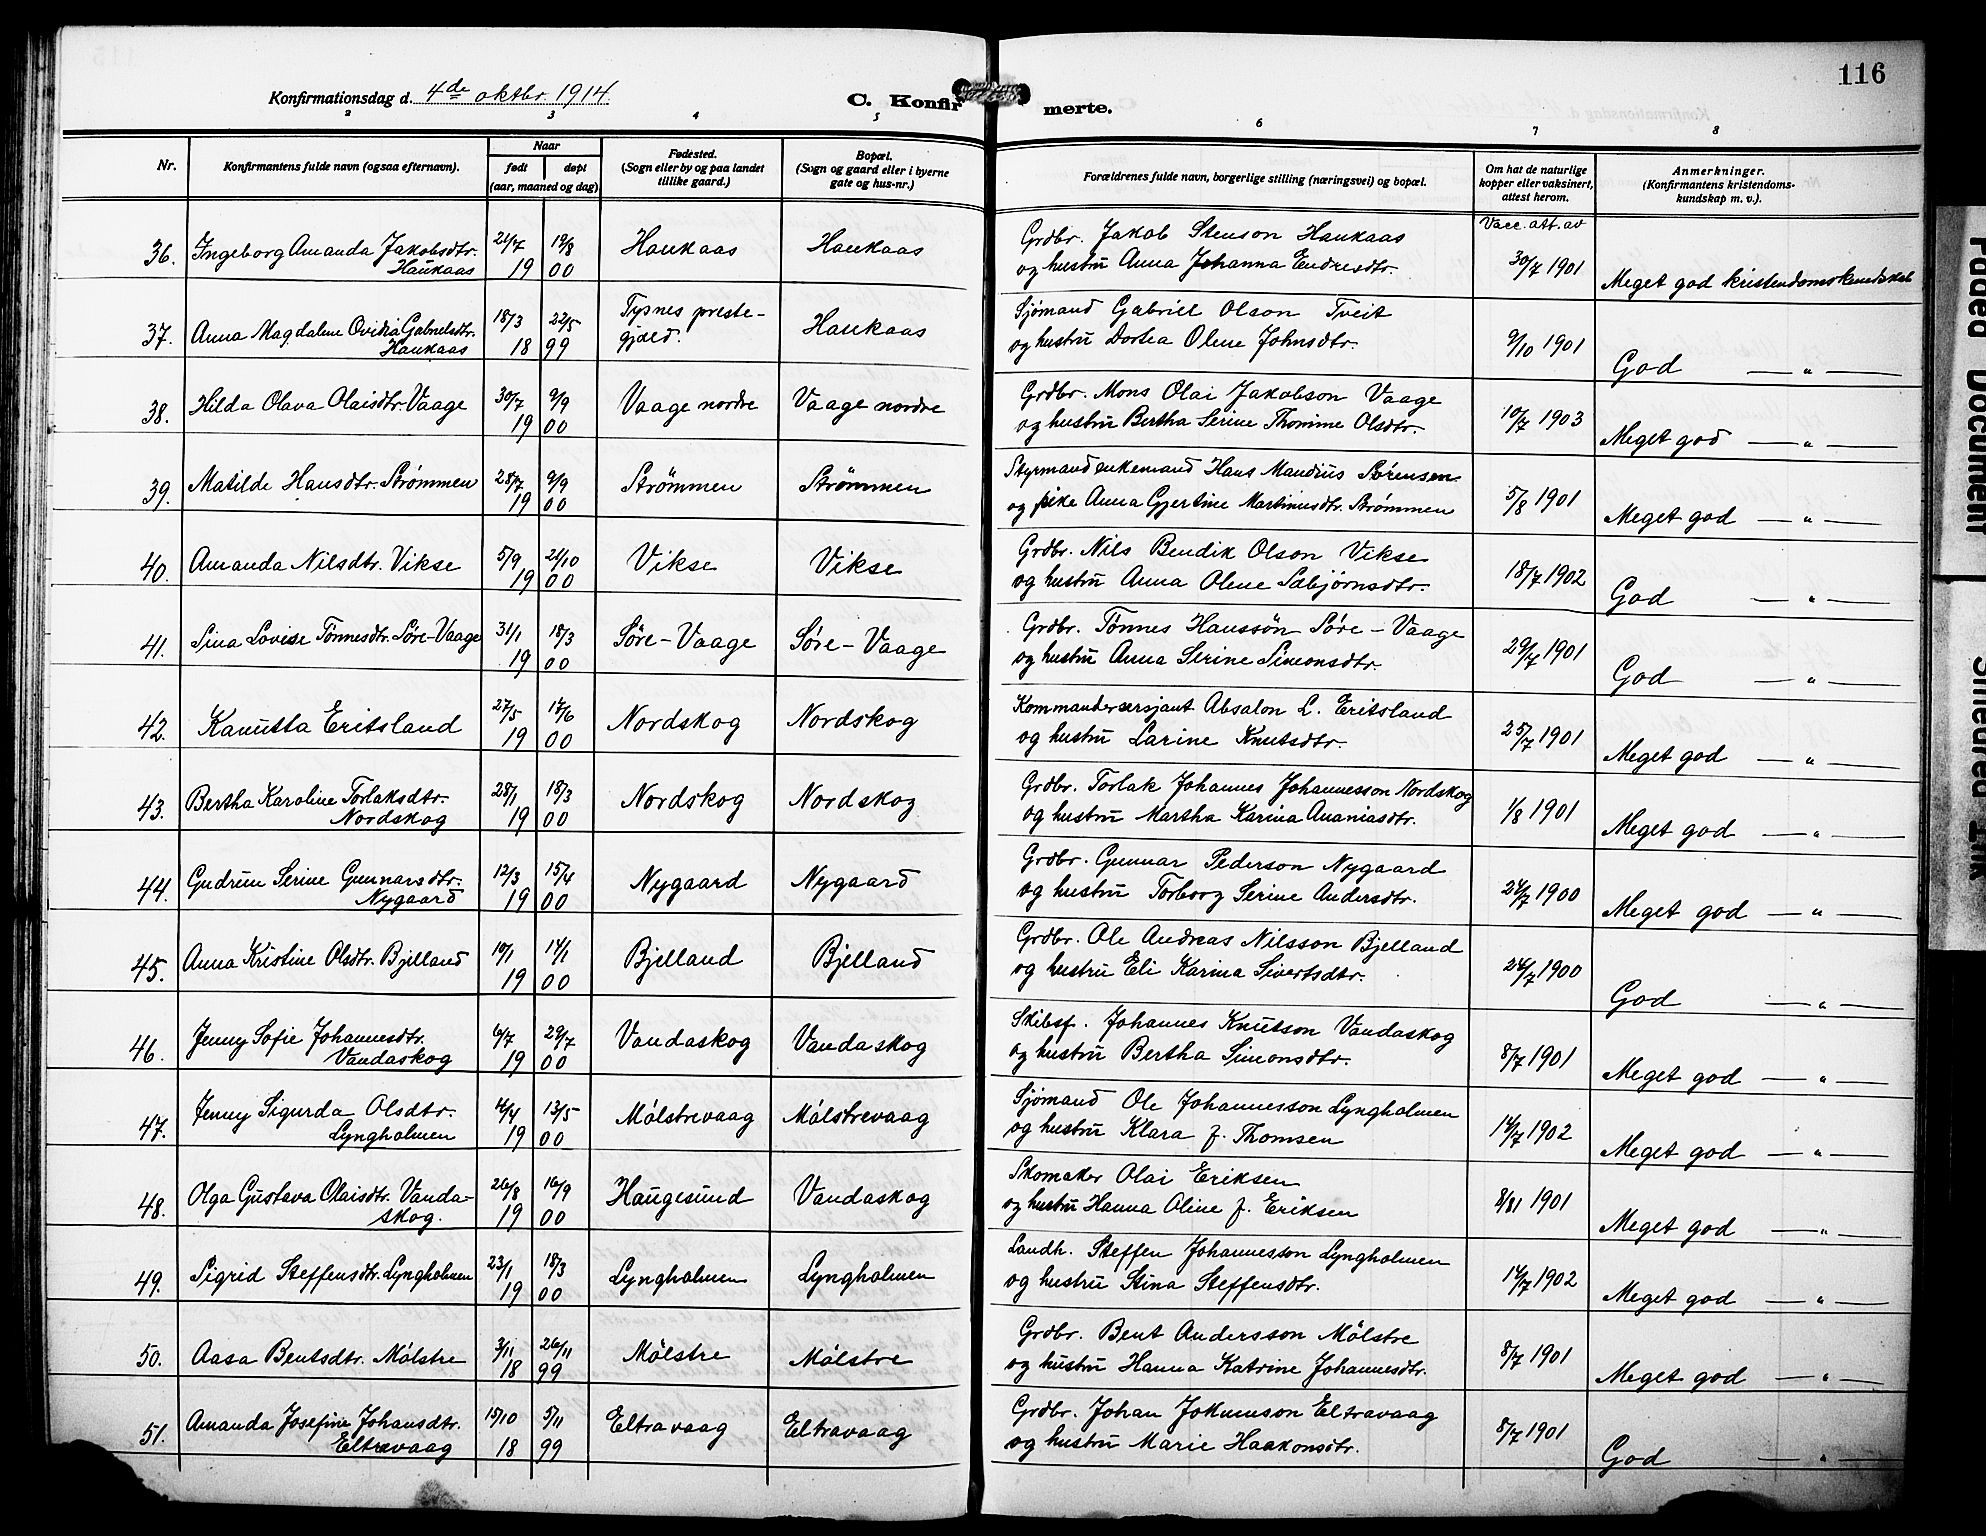 116
Konfirmationsdag d. 4de oktbr. 1914.
C. Konfirmerte.
2 3 4 5 6 7 8
Nr. Konfirmantens fulde navn (ogsaa efternavn). Naar født døpt (aar, maaned og dag) Fødested. (Sogn eller by og paa landet tillike gaard.) Bopæl. (Sogn og gaard eller i byerne gate og hus-nr.) Forældrenes fulde navn, borgerlige stilling (næringsvei) og bopæl. Om hat de naturlige kopper eller vaksinert, attest herom. Anmerkninger. (Konfirmantens kristendoms-kundskap m. v.).
Vacc. att. av
36. Ingeborg Amanda Jakobsdtr. 21/7 19/8 Haukaas Haukaas Grdbr. Jakob Stenson Haukaas
Haukaas 19 00 og hustru Anna Johanna Endresdtr. 30/7 1901 Meget god kristendomskundskab
37. Anna Magdalene Ovidia Gabrielsdtr. 18/3 22/5 Tysnes preste- Haukaas Sjømand Gabriel Olson Tveit
Haukaas 18 99 gjæld. og hustru Dortea Olene Johnsdtr. 9/10 1901 God — " —
38. Hilda Olava Olaisdtr. Vaage 30/7 9/9 Vaage nordre Vaage nordre Grdbr. Mons Olai Jakobson Vaage
19 00 og hustru Bertha Serine Thomine Olsdtr. 10/7 1903 Meget god — " —
39. Matilde Hansdtr. Strømmen 28/7 9/9 Strømmen Strømmen Styrmand enkemand Hans Mandius Sørensen
19 00 og pike Anna Gjertine Martinusdtr. Strømmen 5/8 1901 Meget god — " —
40. Amanda Nilsdtr. Vikse 5/9 21/10 Vikse Vikse Grdbr. Nils Bendik Olson Vikse
19 00 og hustru Anna Olene Sæbjørnsdtr. 18/7 1902 God — " —
41. Sina Lovise Tønnesdtr. Søre-Vaage 31/1 18/3 Søre-Vaage Søre-Vaage Grdbr. Tønnes Hanssøn Søre-Vaage
19 00 og hustru Anna Serine Simonsdtr. 29/7 1901 God — " —
42. Kanutta Eritsland 27/5 17/6 Nordskog Nordskog Kommandersersjant Absalon L. Eritsland
19 00 og hustru Larine Knutsdtr. 25/7 1901 Meget god — " —
43. Bertha Karoline Torlaksdtr. 28/1 18/3 Nordskog Nordskog Grdbr. Torlak Johannes Johannesson Nordskog
Nordskog 19 00 og hustru Martha Karina Ananiasdtr. 1/8 1901 Meget god — " —
44. Gudrun Serine Gunnarsdtr. 12/3 15/4 Nygaard Nygaard Grdbr. Gunnar Pederson Nygaard
Nygaard 19 00 og hustru Torborg Serine Andersdtr. 24/7 1900 Meget god — " —
45. Anna Kristine Olsdtr. Bjelland 10/1 14/1 Bjelland Bjelland Grdbr. Ole Andreas Nilsson Bjelland
19 00 og hustru Eli Karina Sivertsdtr. 24/7 1900 God — " —
46. Jenny Sofie Johannesdtr. 6/7 29/7 Vandaskog Vandaskog Skibsf. Johannes Knutson Vandaskog
Vandaskog 19 00 og hustru Bertha Simonsdtr. 8/7 1901 Meget god — " —
47. Jenny Sigurda Olsdtr. 4/4 13/5 Mølstrevaag Mølstrevaag Sjømand Ole Johannesson Lyngholmen
Lyngholmen 19 00 og hustru Klara f. Thomsen 14/7 1902 Meget god — " —
48. Olga Gustava Olaisdtr. Vanda- 26/8 16/9 Haugesund Vandaskog Skomaker Olai Eriksen
skog. 19 00 og hustru Hanna Oline f. Eriksen 8/81 1901 Meget god — " —
49. Sigrid Steffensdtr. Lyngholmen 23/1 18/3 Lyngholmen Lyngholmen Landh. Steffen Johannesson Lyngholmen
19 00 og hustru Stina Steffensdtr. 14/7 1902 Meget god — " —
50. Aasa Bentsdtr. Mølstre 3/11 26/11 Mølstre Mølstre Grdbr. Bent Andersson Mølstre
18 99 og hustru Hanna Katrine Johannesdtr. 8/7 1901 Meget god — " —
51. Amanda Josefine Johansdtr. 15/10 5/11 Eltravaag Eltravaag Grdbr. Johan Jokumson Eltravaag
Eltravaag 18 99 og hustru Marie Haakonsdtr. 8/7 1901 God — " —